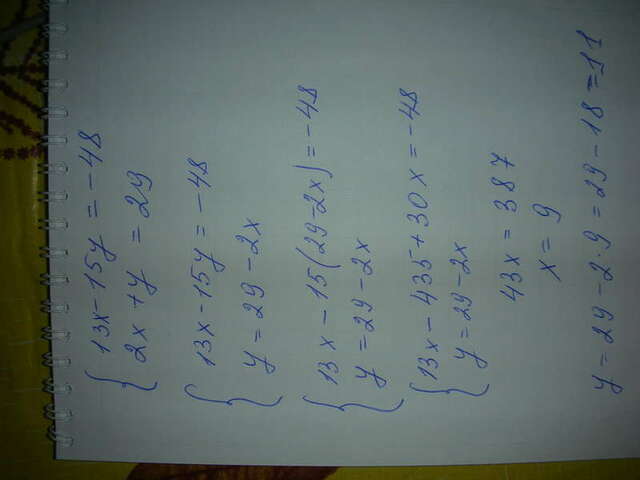 { 13x - 15y = -48
2x + y = 29
{ 13x - 15y = -48
y = 29 - 2x
{ 13x - 15(29 - 2x) = -48
y = 29 - 2x
{ 13x - 435 + 30x = -48
y = 29 - 2x
43x = 387
x = 9
y = 29 - 2·9 = 29 - 18 = 11